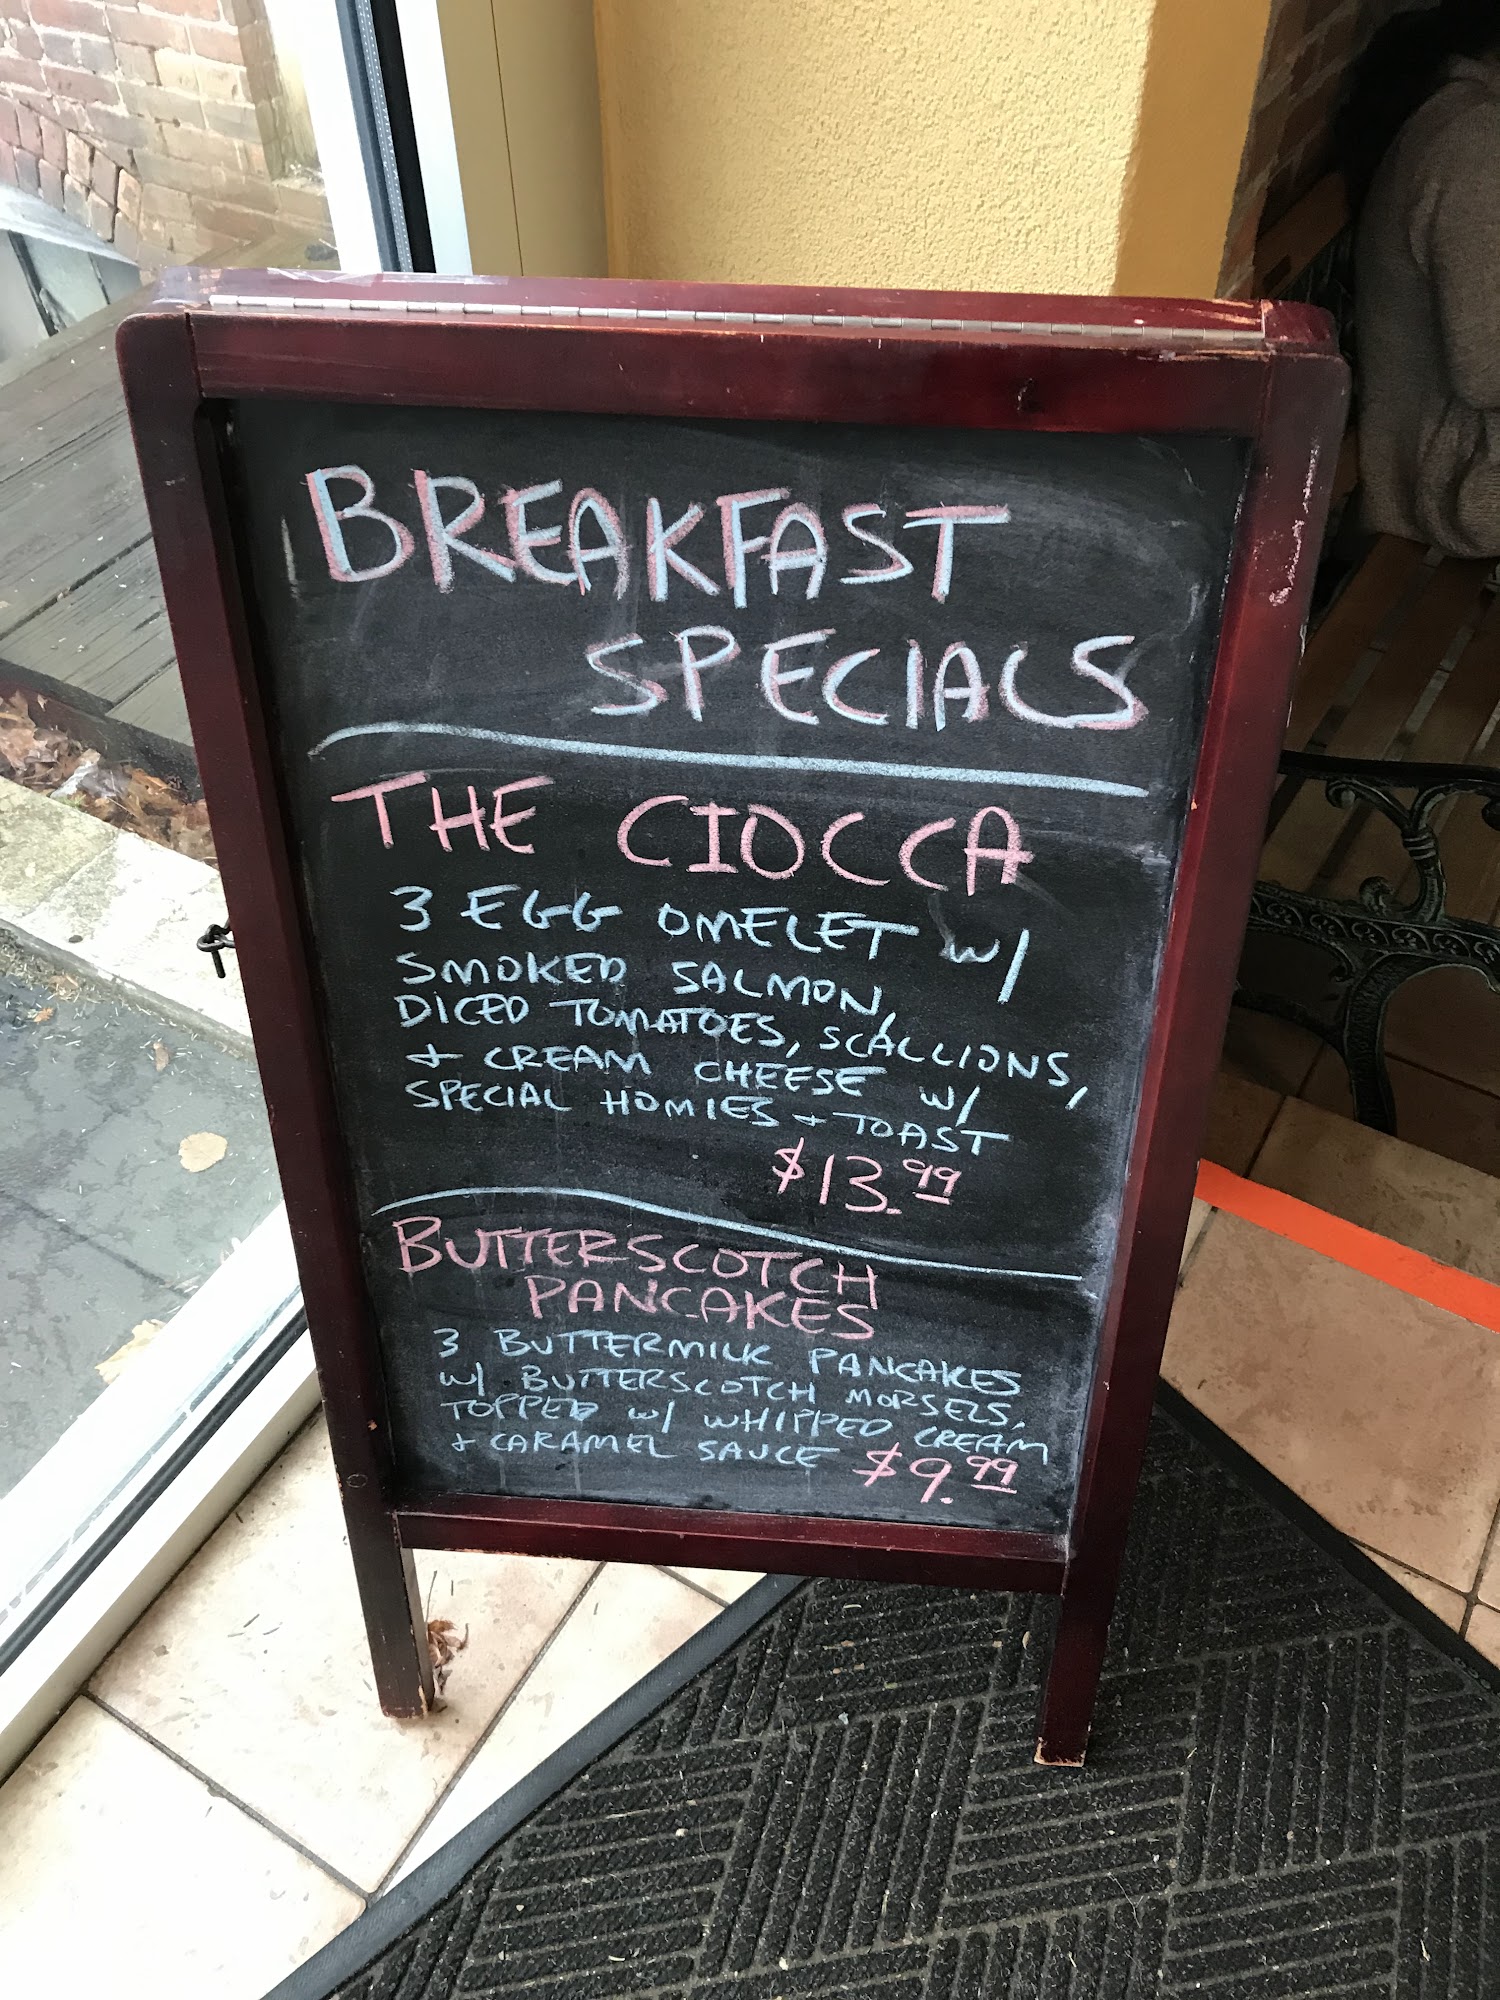 BREAKFAST
SPECIALS
THE CIOCCA
3 EGG OMELET W/
SMOKED SALMON,
DICED TOMATOES, SCALLIONS,
+ CREAM CHEESE W/
SPECIAL HOMIES + TOAST
$13.99
BUTTERSCOTCH
PANCAKES
3 BUTTERMILK PANCAKES
W/ BUTTERSCOTCH MORSELS,
TOPPED W/ WHIPPED CREAM
+ CARAMEL SAUCE $9.99